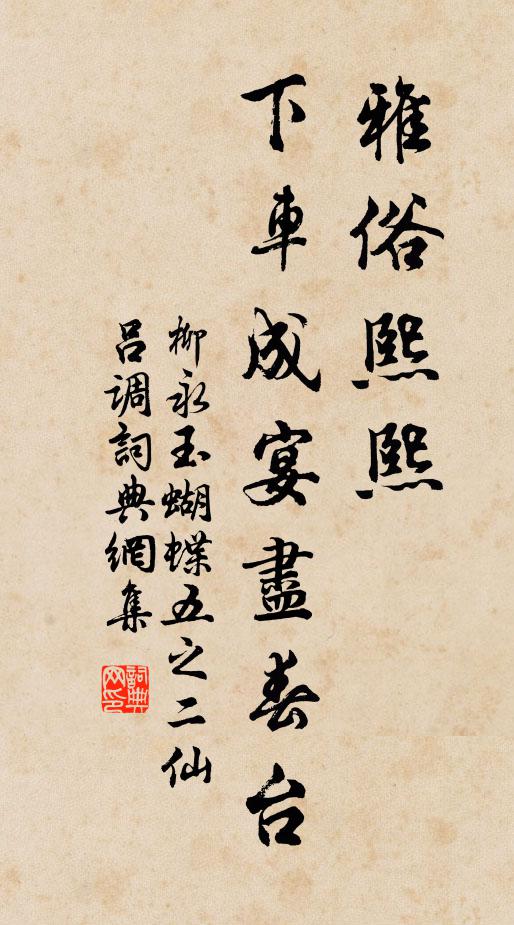 雅俗熙熙
下車成宴盡春台
柳永玉蝴蝶五之二仙
呂调詞典網集
詞典
网印